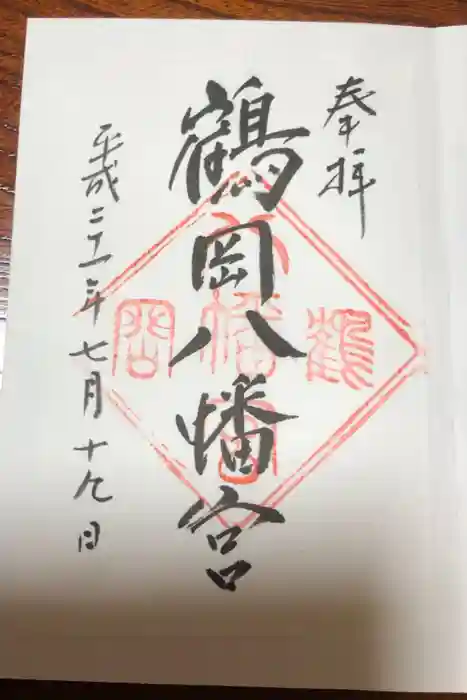 奉拝
鶴岡八幡宮
平成二十一年七月十九日
鶴
八幡宮
岡